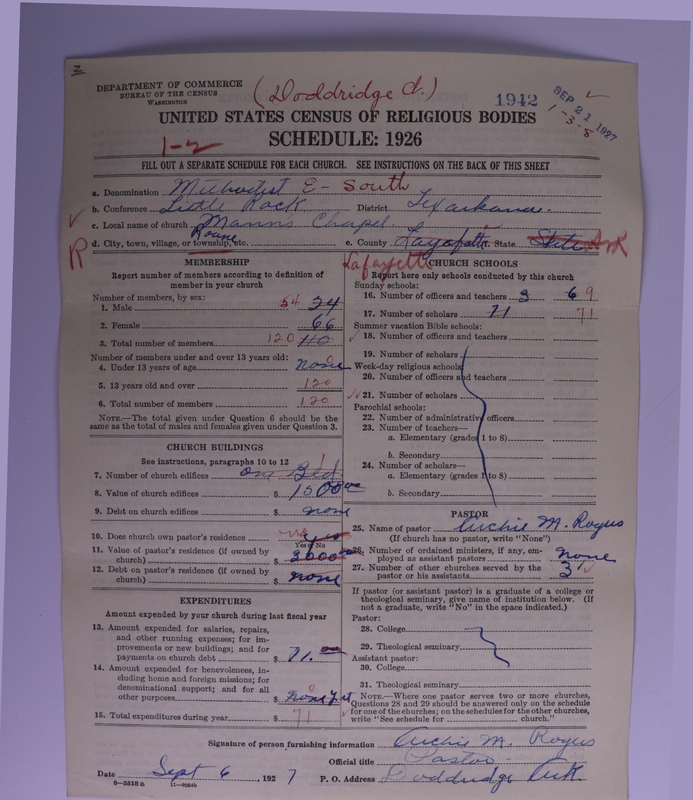 z
DEPARTMENT OF COMMERCE
BUREAU OF THE CENSUS
WASHINGTON
(Doddridge A.)
1942
SEP 21 1927
1-3-8
UNITED STATES CENSUS OF RELIGIOUS BODIES
SCHEDULE: 1926
1-2
FILL OUT A SEPARATE SCHEDULE FOR EACH CHURCH. SEE INSTRUCTIONS ON THE BACK OF THIS SHEET
a. Denomination Methodist E- South
b. Conference Little Rock District Texarkana.
c. Local name of church Manns Chapel
R d. City, town, village, or township, etc. e. County Layofatte State State Ark
Lafayette
MEMBERSHIP
Report number of members according to definition of member in your church
Number of members, by sex:
1. Male 54 34
2. Female 66
3. Total number of members 120 110
Number of members under and over 13 years old:
4. Under 13 years of age none
5. 13 years old and over 120
6. Total number of members 120
NOTE.—The total given under Question 6 should be the same as the total of males and females given under Question 3.
CHURCH BUILDINGS
See instructions, paragraphs 10 to 12
7. Number of church edifices one 1
8. Value of church edifices $ 1500 00
9. Debt on church edifices $ none
10. Does church own pastor's residence no yes
Yes or No
11. Value of pastor's residence (if owned by church) $ 2000 00
12. Debt on pastor's residence (if owned by church) $ none
EXPENDITURES
Amount expended by your church during last fiscal year
13. Amount expended for salaries, repairs, and other running expenses; for improvements or new buildings; and for payments on church debt $ 71.00
14. Amount expended for benevolences, including home and foreign missions; for denominational support; and for all other purposes $ none yet 0
15. Total expenditures during year $ 71
CHURCH SCHOOLS
Report here only schools conducted by this church
Sunday schools:
16. Number of officers and teachers 3 6 9
17. Number of scholars 71 71
Summer vacation Bible schools:
18. Number of officers and teachers
19. Number of scholars
Week-day religious schools:
20. Number of officers and teachers
21. Number of scholars
Parochial schools:
22. Number of administrative officers
23. Number of teachers—
a. Elementary (grades 1 to 8)
b. Secondary
24. Number of scholars—
a. Elementary (grades 1 to 8)
b. Secondary
PASTOR
25. Name of pastor Archie M. Rogers
(If church has no pastor, write "None")
26. Number of ordained ministers, if any, employed as assistant pastors none
27. Number of other churches served by the pastor or his assistants 3
If pastor (or assistant pastor) is a graduate of a college or theological seminary, give name of institution below. (If not a graduate, write "No" in the space indicated.)
Pastor:
28. College
29. Theological seminary
Assistant pastor:
30. College
31. Theological seminary
NOTE.—Where one pastor serves two or more churches, Questions 28 and 29 should be answered only on the schedule for one of the churches; on the schedules for the other churches, write "See schedule for church."
Signature of person furnishing information Archie M. Rogers
Official title Pastor
Date Sept 6, 1927 P. O. Address Doddridge Ark
8—5518b 11—9264b